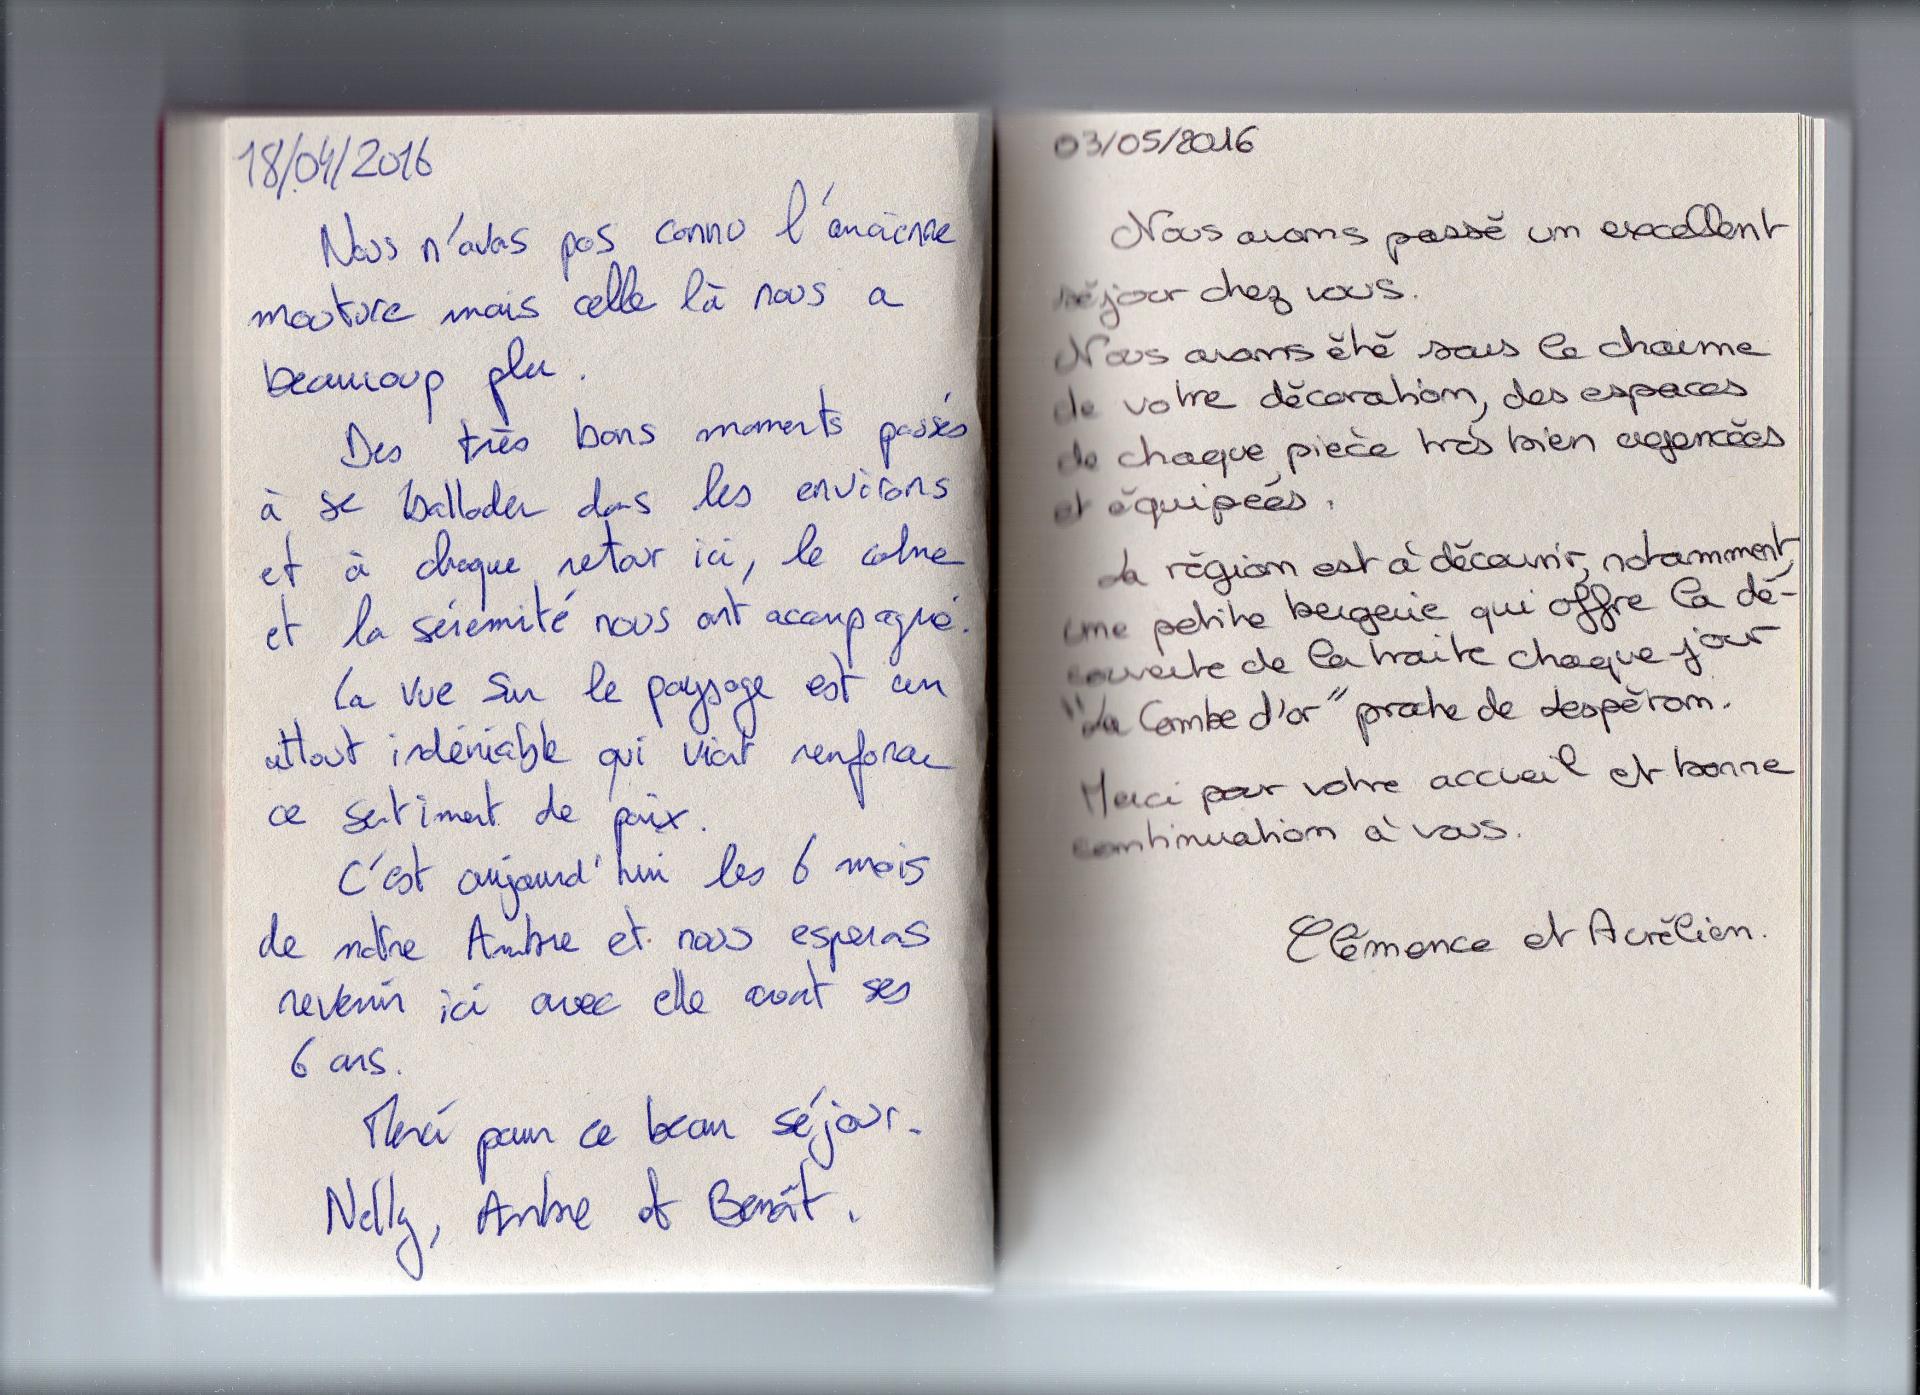 18/04/2016
Nous n'avons pas connu l'ancienne
mouture mais celle là nous a
beaucoup plu.
Des très bons moments passés
à se ballader dans les environs
et à chaque retour ici, le calme
et la sérénité nous ont accompagné.
La vue sur le paysage est un
attout indéniable qui vient renforcer
ce sentiment de paix.
C'est aujourd'hui les 6 mois
de notre Ambre et nous esperons
revenir ici avec elle avant ses
6 ans.
Merci pour ce beau séjour.
Nelly, Ambre et Benoît.
03/05/2016
Nous avons passé un excellent
séjour chez vous.
Nous avons été sous le charme
de votre décoration, des espaces
de chaque pièce très bien agencées
et équipées.
La région est à découvrir, notamment,
une petite bergerie qui offre la dé-
couverte de la traite chaque jour
"La Combe d'or" proche de Lespéron.
Merci pour votre accueil et bonne
continuation à vous.
Clémence et Aurélien.